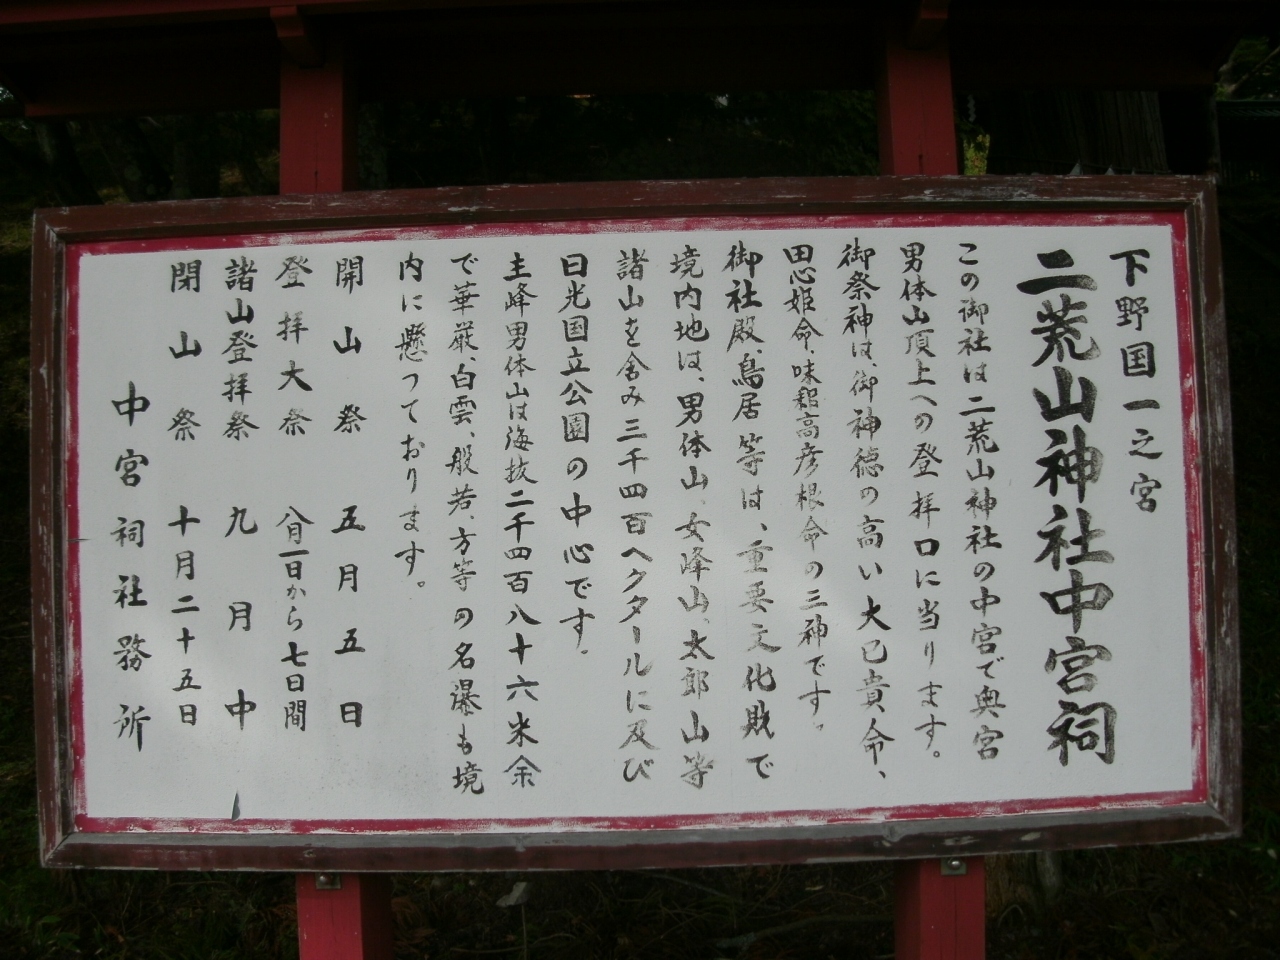 下野国一之宮
二荒山神社中宮祠
この御社は二荒山神社の中宮で奥宮
男体山頂上への登拝口に当ります。
御祭神は、御神徳の高い大己貴命、
田心姫命、味耜高彦根命の三神です。
御社殿、鳥居等は、重要文化財で
境内地は、男体山、女峰山、太郎山等
諸山を含み三千四百ヘクタールに及び
日光国立公園の中心です。
主峰男体山は海抜二千四百八十六米余
で華厳、白雲、般若、方等の名瀑も境
内に懸っております。
開山祭 五月五日
登拝大祭 八月一日から七日間
諸山登拝祭 九月中
閉山祭 十月二十五日
中宮祠社務所